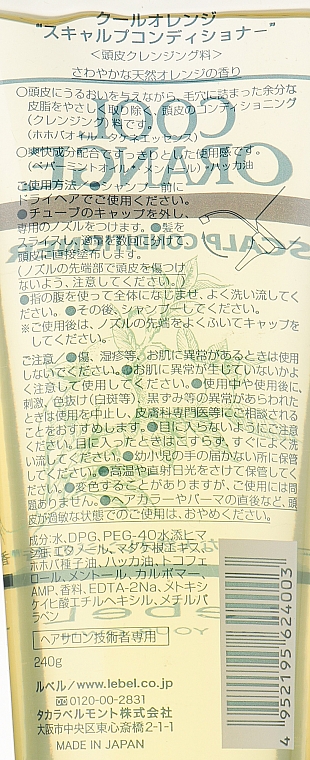 クールオレンジ
"スキャルプコンディショナー"
<頭皮クレンジング料>
さわやかな天然オレンジの香り
○頭皮にうるおいを与えながら、毛穴に詰まった余分な
皮脂をやさしく取り除く、頭皮のコンディショニング
(クレンジング)料です。
(ホホバオイル・タケネエッセンス)
○爽快成分配合ですっきりとした使用感です。
(ペパーミントオイル・メントール)・ハッカ油
ご使用方法／●シャンプー前に
ドライヘアでご使用ください。
●チューブのキャップを外し、
専用のノズルをつけます。●髪を
スライスし、適量を数回に分けて
頭皮に直接塗布します。
(ノズルの先端部で頭皮を傷つけ
ないよう、注意してください。)
●指の腹を使って全体になじませ、よく洗い流してく
ださい。●その後、シャンプーしてください。
※ご使用後は、ノズルの先端をよくふいてキャップを
してください。
ご注意／●傷、湿疹等、お肌に異常があるときは使用
しないでください。●お肌に異常が生じていないかよ
く注意して使用してください。●使用中や使用後に、
刺激、色抜け(白斑等)、黒ずみ等の異常があらわれた
ときは使用を中止し、皮膚科専門医等にご相談される
ことをおすすめします。●目に入らないようにご注意
ください。目に入ったときはこすらず、すぐによく洗
い流してください。●幼小児の手の届かない所に保管し
てください。●高温や直射日光をさけて保管してくだ
さい。●変色することがありますが、ご使用には問題
ありません。●ヘアカラーやパーマの直後など、頭
皮が過敏な状態でのご使用は、おやめください。
成分:水、DPG、PEG-40水添ヒマ
シ油、エタノール、マダケ根エキス、
ホホバ種子油、ハッカ油、トコフェ
ロール、メントール、カルボマー、
AMP、香料、EDTA-2Na、メトキシ
ケイヒ酸エチルヘキシル、メチルパ
ラベン
ヘアサロン技術者専用
240g
ルベル/www.lebel.co.jp
0120-00-2831
タカラベルモント株式会社
大阪市中央区東心斎橋2-1-1
MADE IN JAPAN
4952195624003
COOL
ORANGE
SCALP CONDITIONER